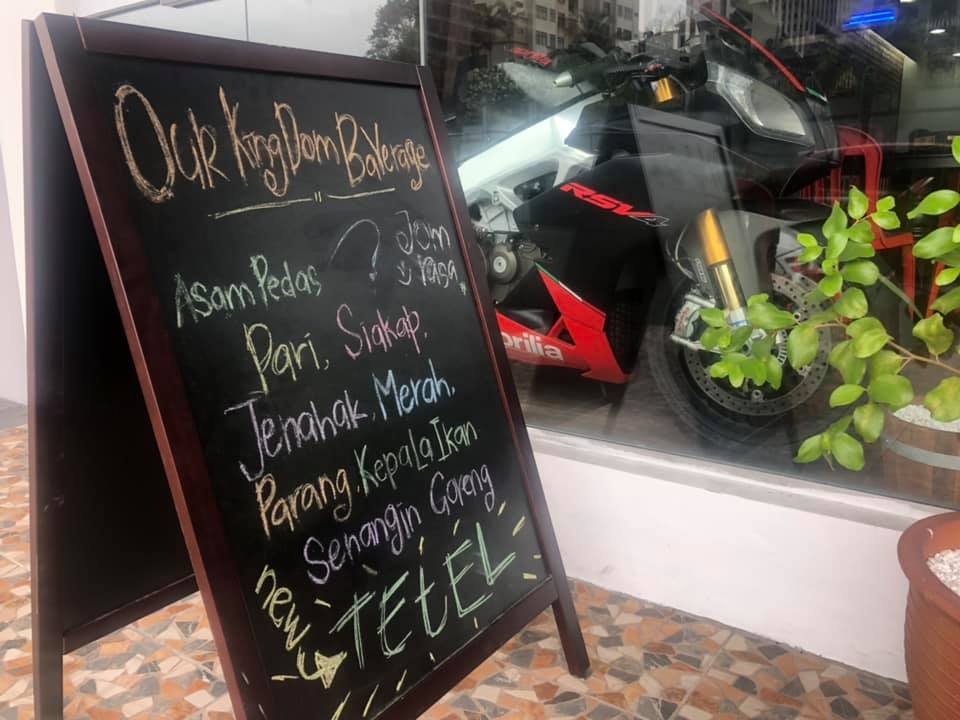 Our KingDom BaVerage
Asam Pedas ? Jom
rasa
Pari, Siakap,
Jenahak, Merah,
Parang, Kepala Ikan
Senangin Goreng
new TETEL
RSV4
aprilia